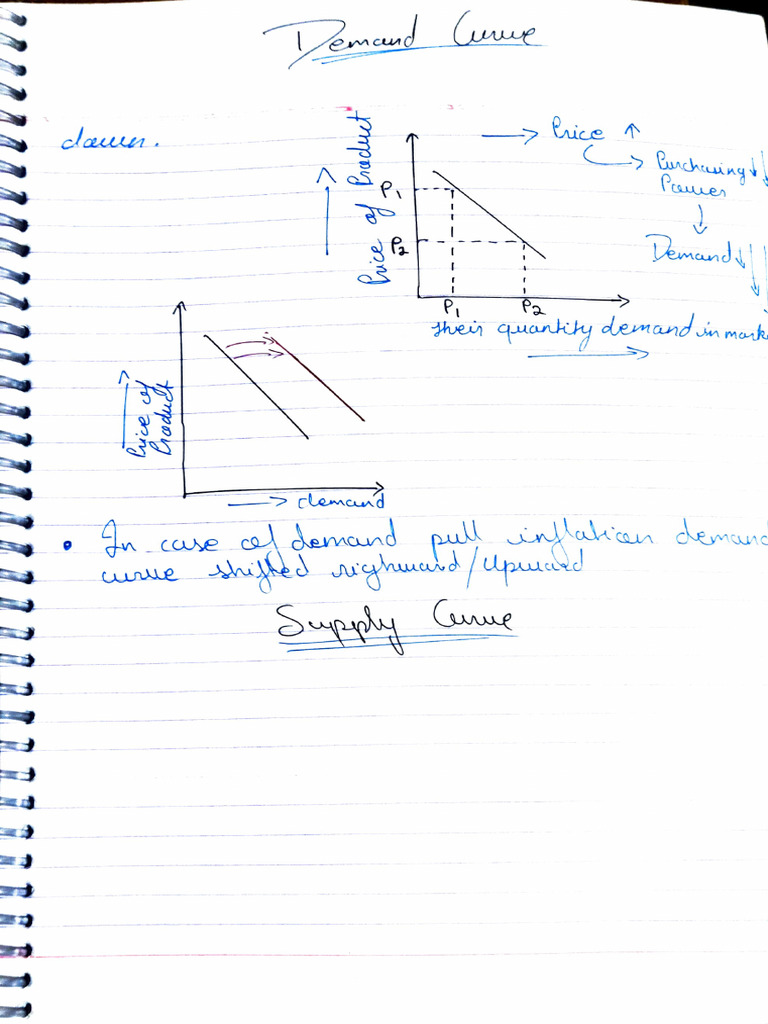 Demand Curve
down.
Price of Product
P1
P2
P1
P2
their quantity demand in mark
Price ↑
Purchasing ↓↓
Power
Demand ↓↓↓
Price of
Product
demand
• In case of demand pull inflation demand
curve shifted righward/Upward
Supply Curve